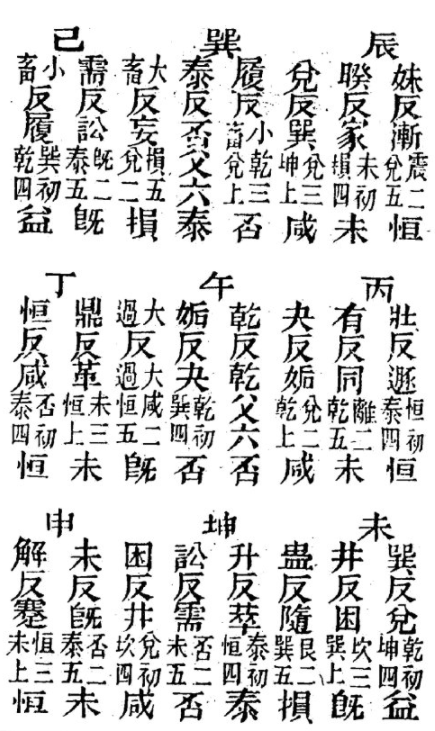 辰
妹反漸震二兌五恒
睽反家未初損四未
兌反巽兌三坤上咸
履反小畜乾三兌上否
巽
泰反否父六泰
大畜反妄損五兌二損
己
需反訟既二泰五既
小畜反履巽初乾四益
丙
壯反遯恒初泰四恒
有反同離二乾五未
夬反姤兌二乾上咸
午
乾反乾父六否
姤反夬乾初巽四否
大過反大過咸二恒五既
丁
鼎反革未三恒上未
恒反咸否初泰四恒
未
巽反兌乾初坤四益
井反困坎三巽上既
蠱反隨艮二巽五損
坤
升反萃泰初恒四泰
訟反需否二未五否
困反井兌初坎四咸
申
未反既否二泰五未
解反蹇恒三未上恒